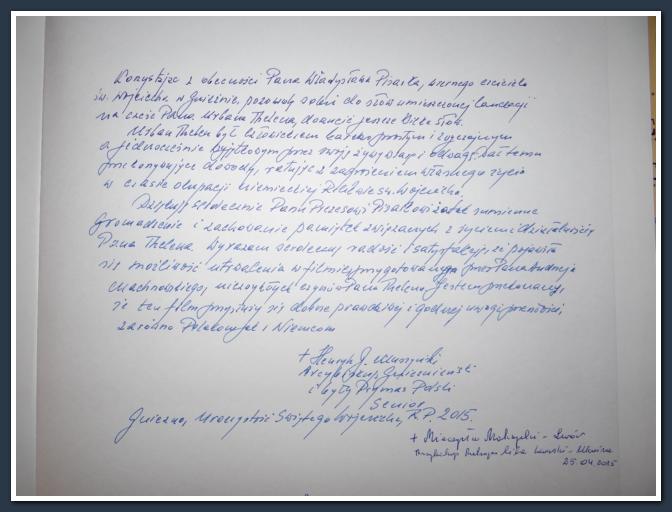 Korzystając z obecności Pana Władysława Pisarka, wiernego czciciela
św. Wojciecha w Gnieźnie, pozwolę sobie do słów umieszczonej laudacji
na cześć Pana Urbana Thelena, dodać jeszcze kilka słów.
Urban Thelen był człowiekiem bardzo prostym i zwyczajnym
a jednocześnie wyjątkowym przez swoją żywą wiarę i odwagę. Dał temu
przekonywujące dowody, ratując z zagrożeniem własnego życia
w czasie okupacji niemieckiej Relikwie św. Wojciecha.
Dziękuję serdecznie Panu Prezesowi za tak sumienne
gromadzenie i zachowanie pamiątek związanych z życiem i działalnością
Pana Thelena. Wyrażam serdeczną radość i satysfakcję, że pojawiła
się możliwość utrwalenia w filmie przygotowanym przez Pana
niezwykłych czynów Pana Thelena. Jestem przekonany,
że ten film przysłuży się dobrze prawdziwej i godnej uwagi przeszłości
zarówno Polakom jak i Niemcom
+ Henryk J. Muszyński
Arcybiskup Gnieźnieński
i były Prymas Polski
Senior
Gniezno, Uroczystość Świętego Wojciecha, R.P. 2015.
+ Mieczysław Mokrzycki - Lwów
Arcybiskup Lwowski - Ukraina
25.04.2015